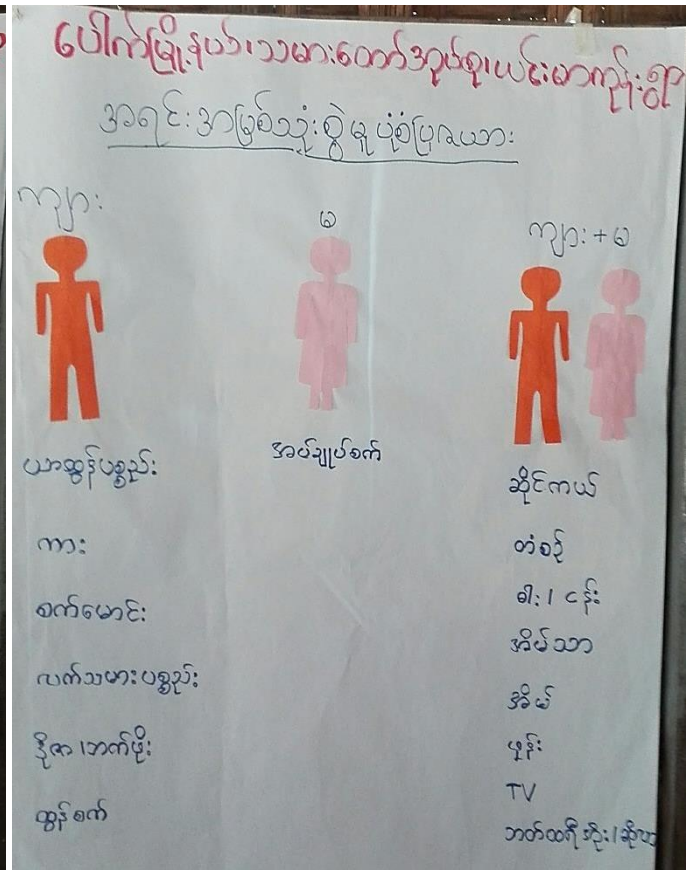 ပေါက်မြို့နယ်၊သမားတော်အုပ်စု၊ယင်းမာကုန်းရွာ
အရင်းအမြစ်သုံးစွဲမှုပုံစံပြဇယား
ကျား
မ
ကျား+မ
ယာထွန်ပစ္စည်း
ကား
စက်မောင်း
လက်သမားပစ္စည်း
ဒိုဇာ၊ဘက်ဖိုး
ထွန်စက်
အပ်ချုပ်စက်
ဆိုင်ကယ်
တံစဉ်
ဓါး၊ ငန်း
အိမ်သာ
အိမ်
ဖုန်း
TV
ဘတ်ထရီအိုး၊